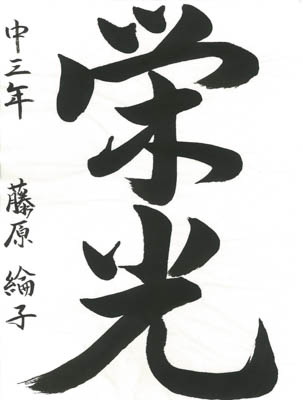 栄光
中三年 藤原 綸子